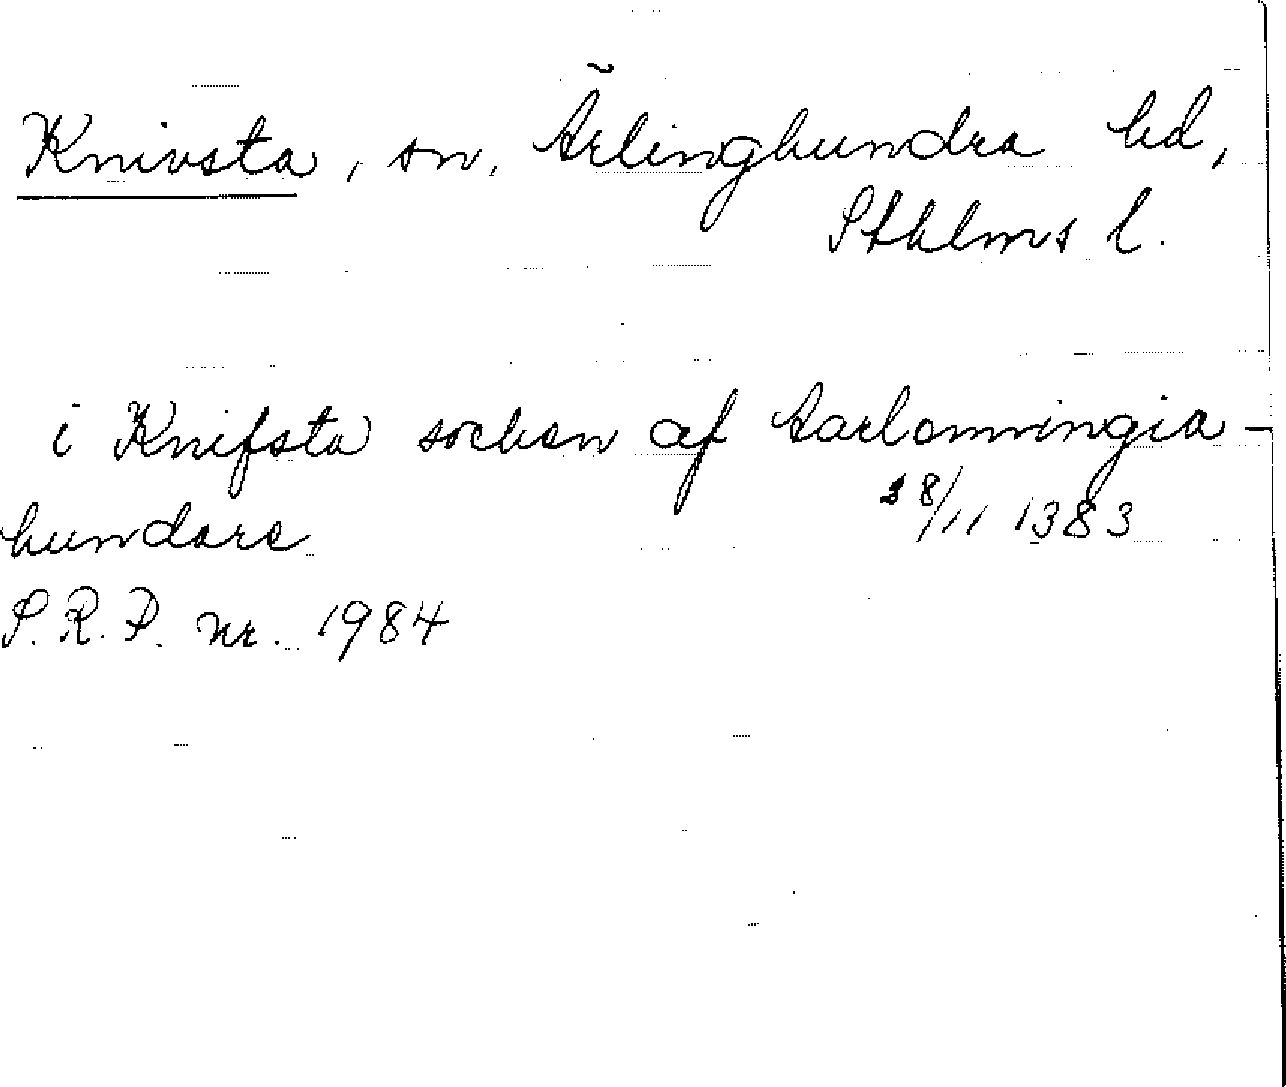 Knivsta, sn, Ärlinghundra hd,
Sthlms l.
i Knifsta socken af Aarlomningia-
hundare 28/11 1383
S.R.P. nr. 1984